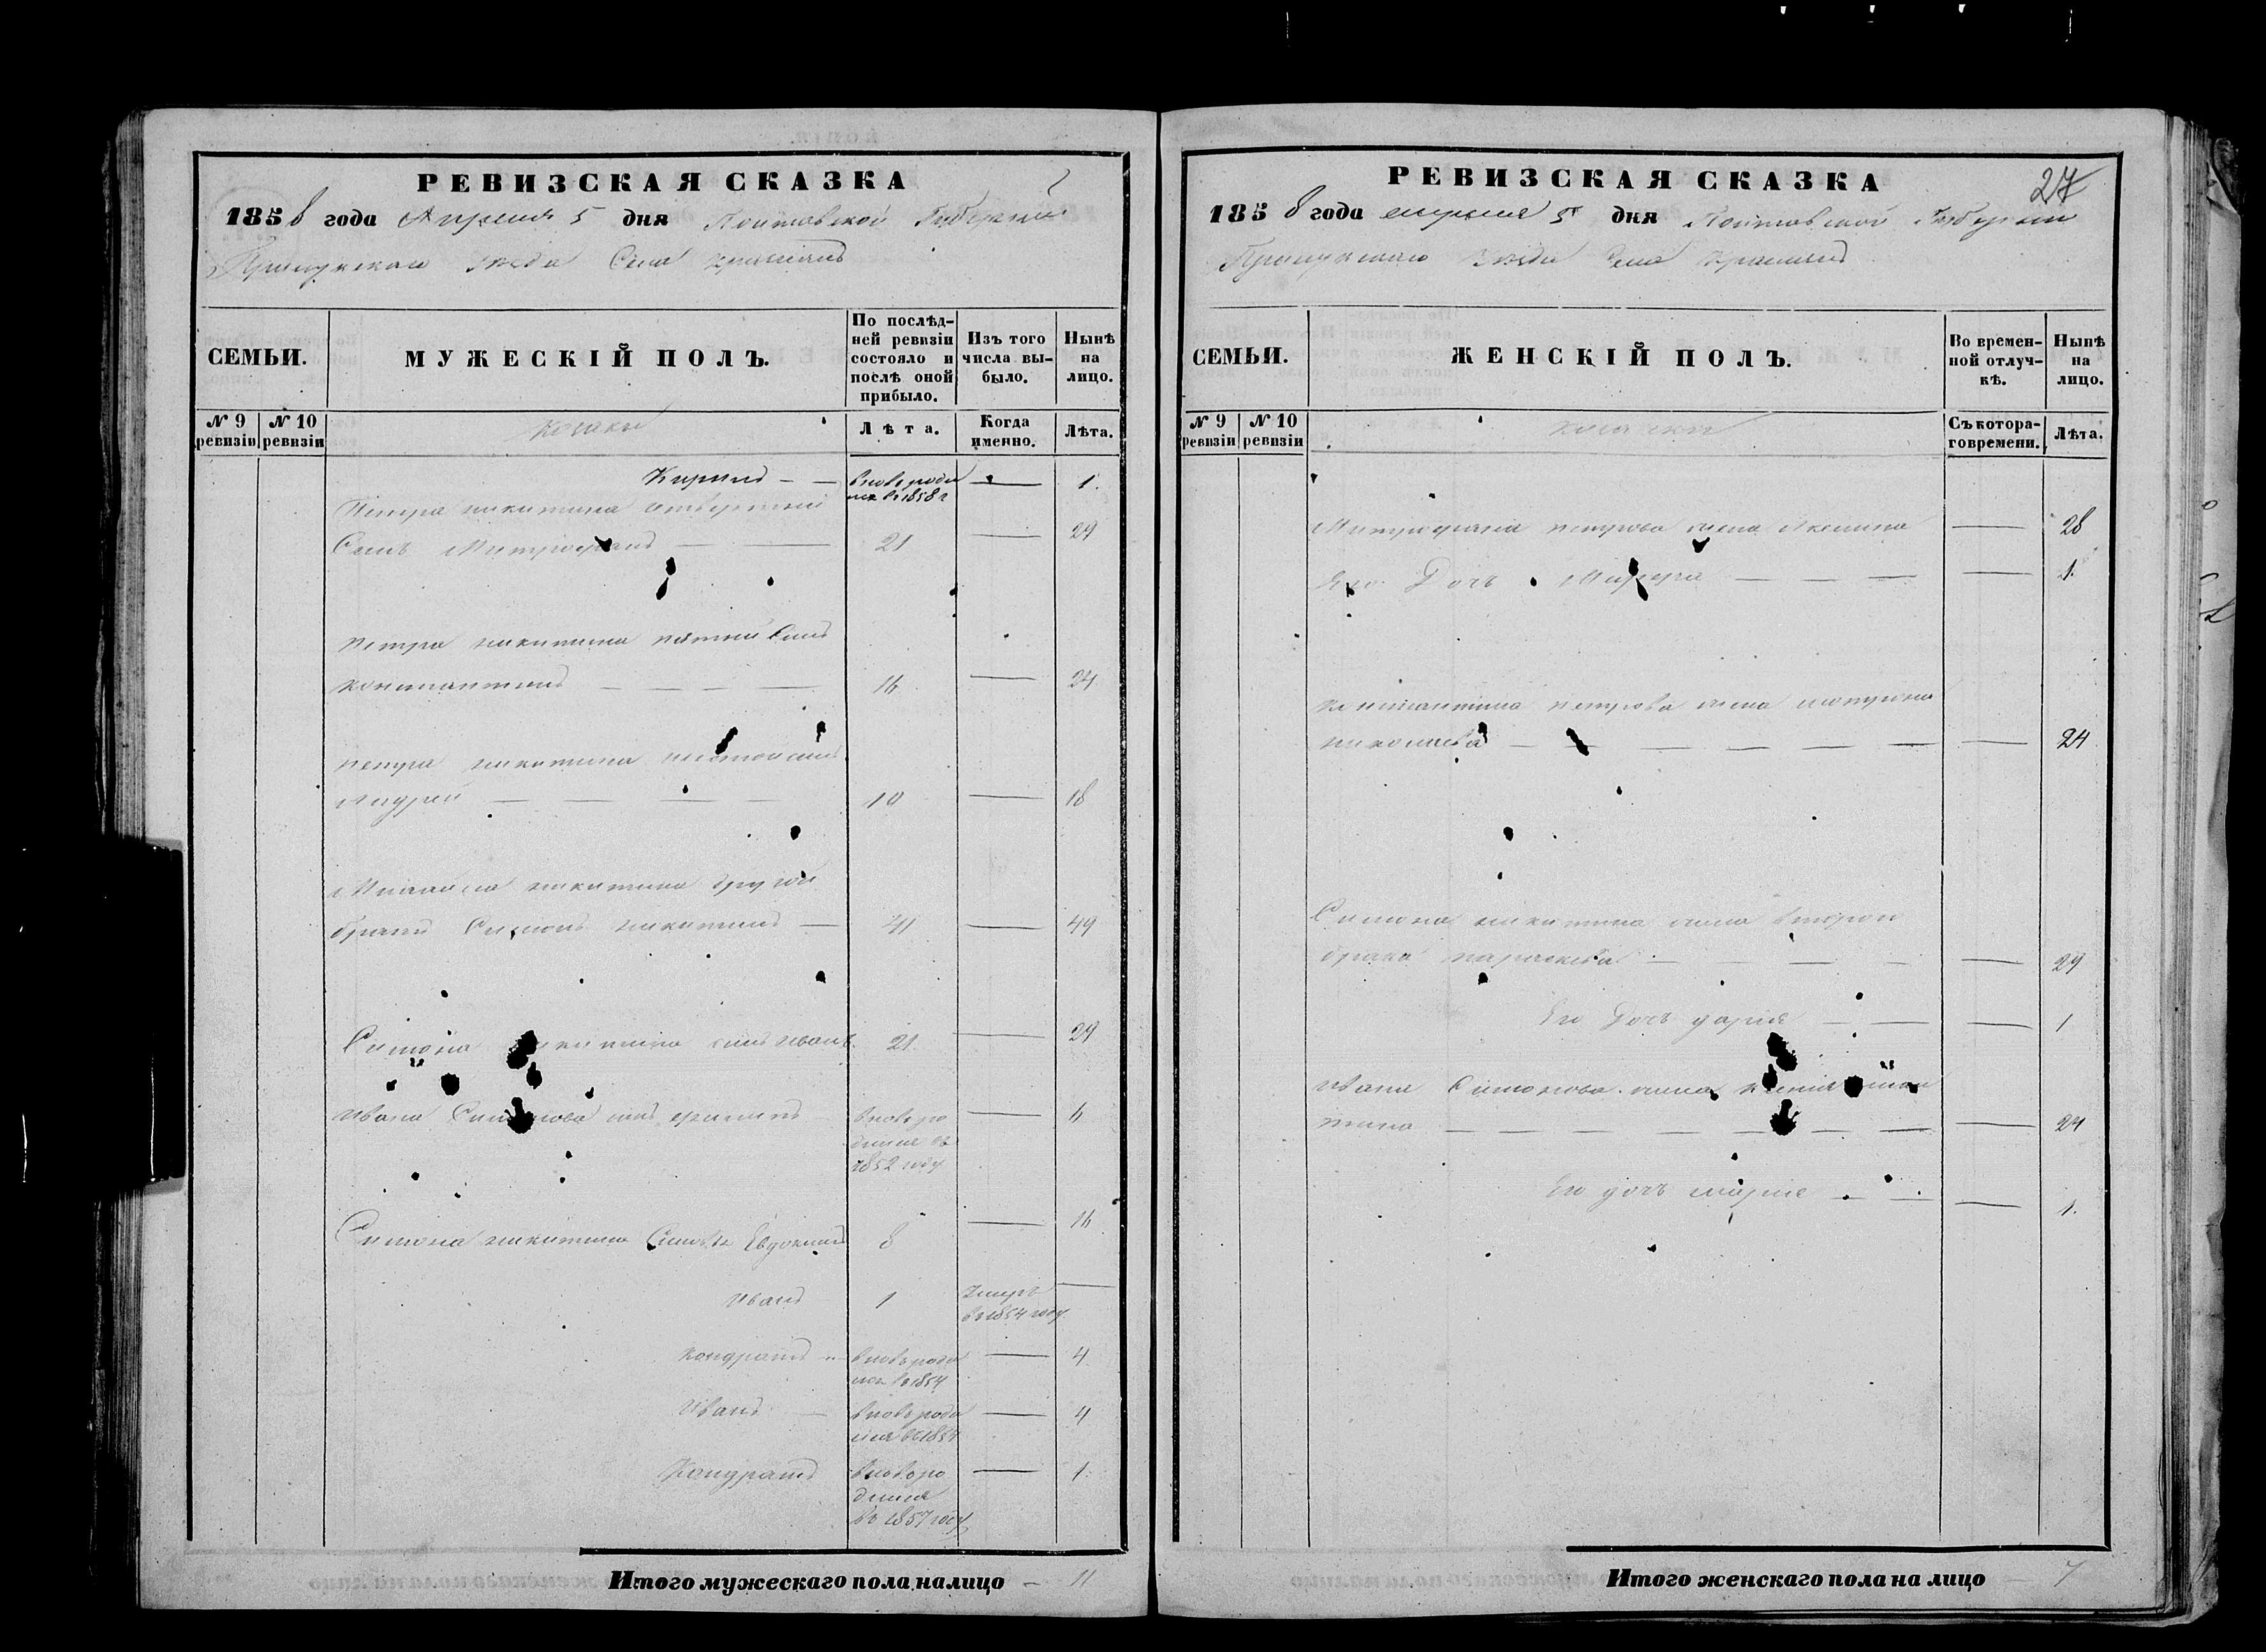 РЕВИЗСКАЯ СКАЗКА
1858 года Апреля 5 дня Полтавской Губернии
Прилукского уезда Села
СЕМЬИ.
МУЖЕСКІЙ ПОЛЪ.
По послѣд-
ней ревизіи
состояло и
послѣ оной
прибыло.
Изъ того
числа вы-
было.
Нынѣ
на
лицо.
№ 9 ревизіи
№ 10 ревизіи
козаки
Лѣта.
Когда
именно.
Лѣта.
Кирилъ — — вновь роди — 1.
лся въ 1858 г
Петра никитина четвертый
Сынъ Митрофанъ — — 21 — 29
петра никитина пятый Сынъ
константинъ — — — — 16 — 24
петра никитина шестой сынъ
Андрей — — — — 10 — 18
никитина другой
братъ Симонъ никитинъ — 41 — 49
Симона никитина сынъ иванъ 21. — 29
ивана Симонова сынъ вновь ро — 6
дился въ
1852 году
Симона никитина Синовья Евдокимъ 8 — 16
иванъ 1 умеръ —
в 1854 году
кондратъ вновь роди — 4
лся в 1854
иванъ — вновь роди — 4
лся в 1854
Кондратъ вновь ро — 1.
дился
въ 1857 году
Итого мужескаго пола налицо — 11
РЕВИЗСКАЯ СКАЗКА
27
1858 года апреля 5 дня Полтавской Губернии
Прилукского уезда Села
СЕМЬИ.
ЖЕНСКІЙ ПОЛЪ.
Во времен-
ной отлуч-
кѣ.
Нынѣ
на
лицо.
№ 9 ревизіи
№ 10 ревизіи
Съ котора-
го времени.
Лѣта.
Митрофана петрова жена Акелина — 28
Его Дочь — — — — 1.
константина петрова жена
николаева — — — — — — — 24
Симона никитина жена второго
брака параскева — — — — — 29
Его Дочь дария — — — 1
ивана Симонова жена
— — — — — — — — 24
Его дочь мария — — — 1.
Итого женскаго пола на лицо — 7